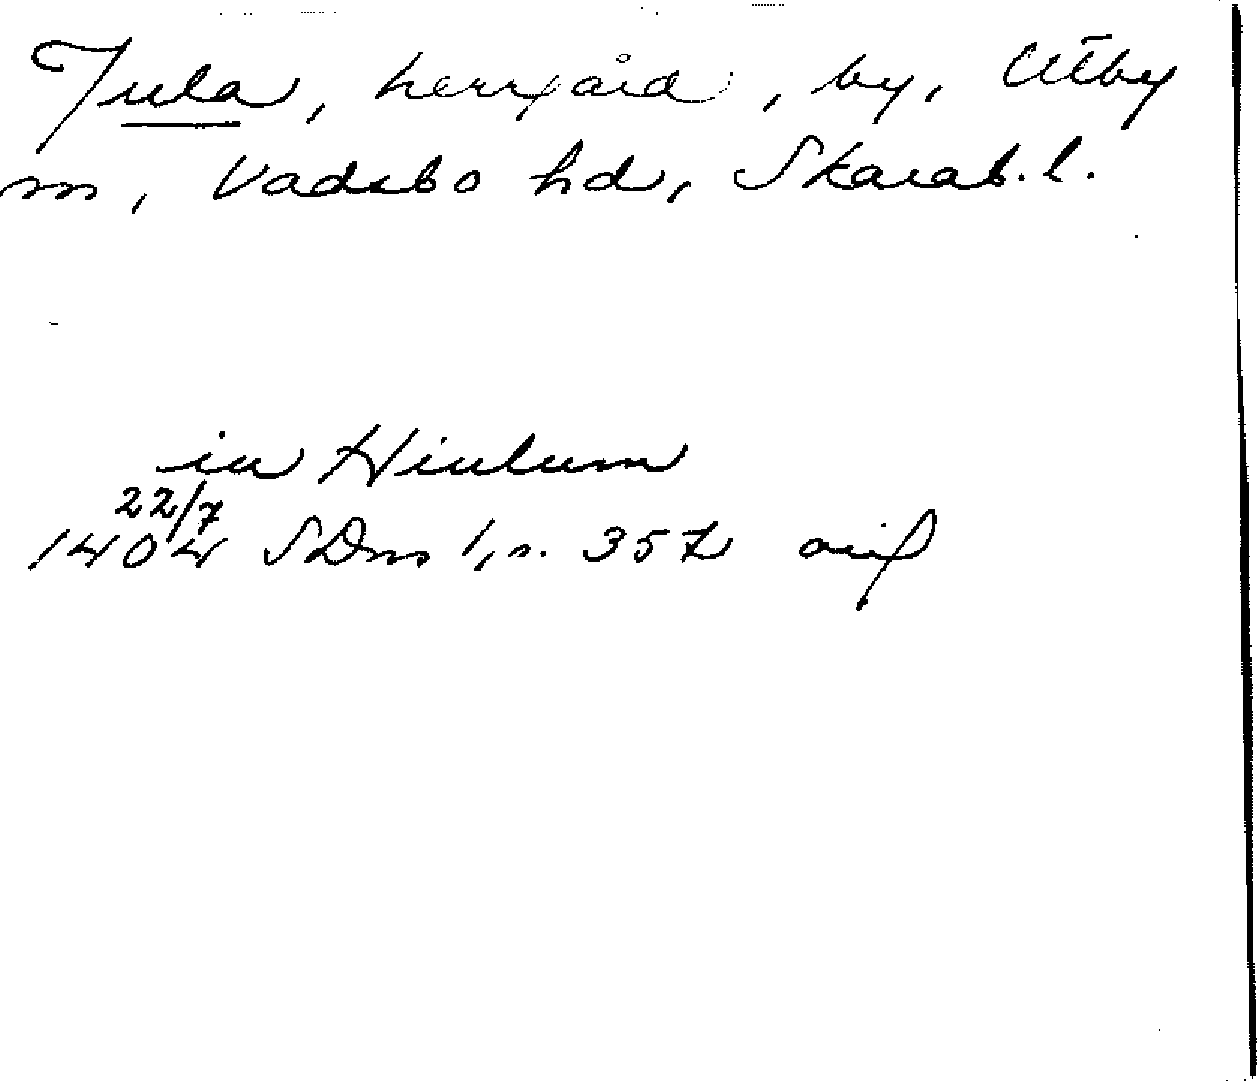 Jula, herrgård, by, Utby
sn, Vadsbo hd, Skarab. l.
in Hiulum
22/7
1404 SDns 1, s. 357 orig